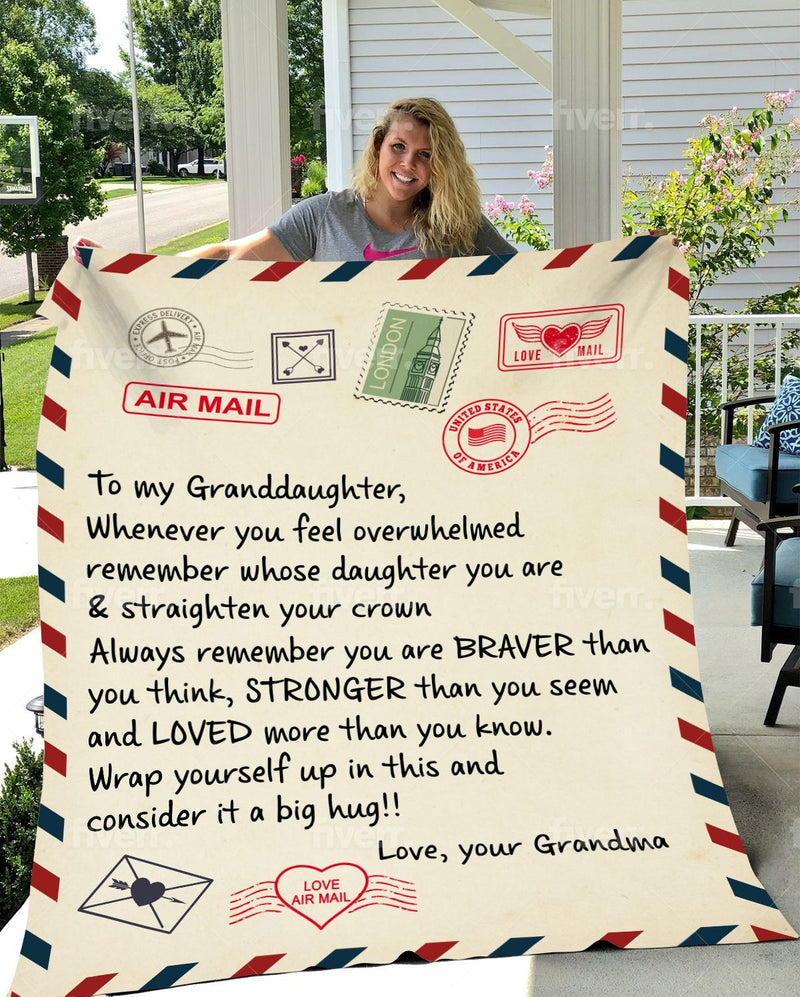 EXPRESS DELIVERY • AIR MAIL • POST OFFICE •
LONDON
LOVE MAIL
AIR MAIL
UNITED STATES
OF AMERICA
To my Granddaughter,
Whenever you feel overwhelmed
remember whose daughter you are
& straighten your crown
Always remember you are BRAVER than
you think, STRONGER than you seem
and LOVED more than you know.
Wrap yourself up in this and
consider it a big hug!!
Love, your Grandma
LOVE
AIR MAIL
SPALDING
fiverr.